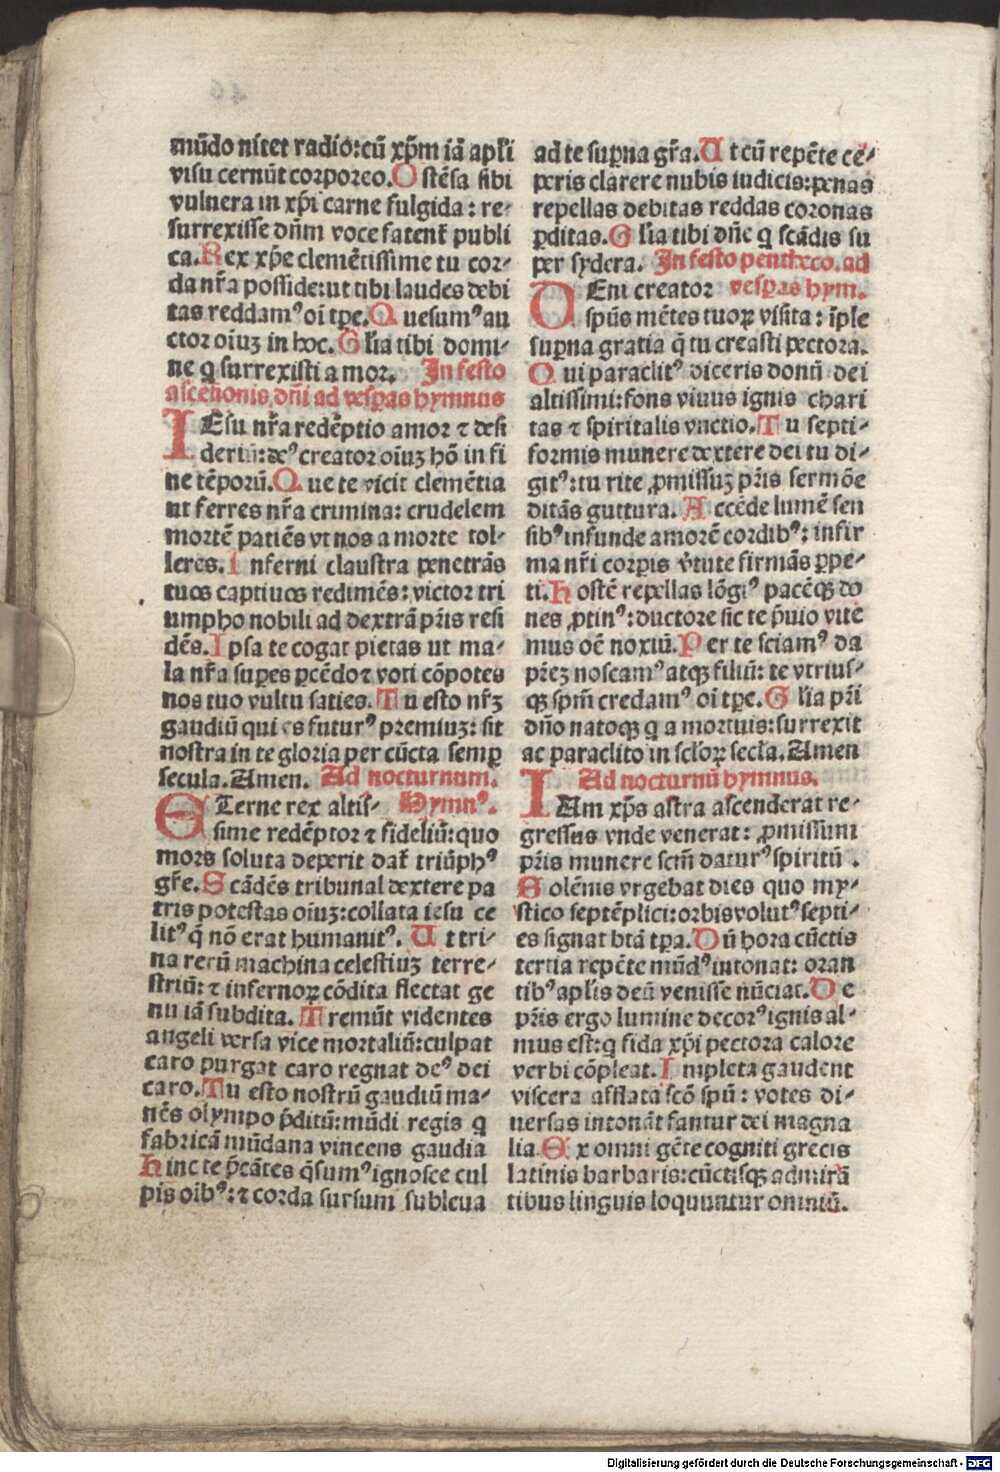 mūdo nitet radio:cū xp̄m iā apl̄i
visu cernūt corporeo.Ostēsa sibi
vulnera in xp̄i carne fulgida: re-
surrexisse dn̄m voce fatent̄ publi
ca.Rex xp̄e clemētissime tu cor-
da nr̄a posside:ut tibi laudes debi
tas reddamꝰ oī tp̄e.Quesumꝰ au
ctor oīuꝫ in hoc.Gl̄ia tibi domi-
ne q surrexisti a mor. In festo
ascētionis dn̄i ad vesꝑas hymnus
IEsu nr̄a redēptio amor ⁊ desi
deriū:deꝰ creator oīuꝫ hō in fi
ne tēporū.Que te vicit clemētia
ut ferres nr̄a crimina: crudelem
mortē patiēs vt nos a morte tol-
leres.Inferni claustra penetrās
tuos captiuos redimēs: victor tri
umpho nobili ad dextrā pr̄is resi
dēs.Ipsa te cogat pietas ut ma-
la nr̄a suꝑes ꝑcēdo ⁊ voti cōpotes
nos tuo vultu saties.Tu esto nr̄ꝫ
gaudiū qui es futurꝰ premiuꝫ: sit
nostra in te gloria per cūcta semꝑ
secula.Amen. Ad nocturnum.
ETerne rex altis- Hymnꝰ.
sime redēptor ⁊ fideliū:quo
mors soluta deperit dat̄ triūphꝰ
gr̄e.Scādēs tribunal dextere pa
tris potestas oīuꝫ:collata iesu ce
litꝰ q̄ nō erat humanitꝰ. Ut tri-
na rerū machina celestiuꝫ terre-
striū: ⁊ infernoꝝ cōdita flectat ge
nu iā subdita. Tremūt videntes
angeli versa vice mortaliū:culpat
caro purgat caro regnat deꝰ dei
caro.Tu esto nostrū gaudiū ma-
nēs olympo p̄ditū:mūdi regis q
fabricā mūdana vincens gaudia
Hinc te p̄cātes q̄sumꝰ ignosce cul
pis oībꝰ: ⁊ corda sursum subleua
ad te suꝑna gr̄a.Ut cū repēte cē-
peris clarere nubis iudicis:penas
repellas debitas reddas coronas
ꝑditas.Gl̄ia tibi dn̄e q scādis su
per sydera. In festo pentheco. ad
VEni creator vesꝑas hym.
spūs mētes tuoꝝ visita: īple
suꝑna gratia q̄ tu creasti pectora.
Qui paraclitꝰ diceris donū dei
altissimi:fons viuus ignis chari
tas ⁊ spiritalis vnctio.Tu septi-
formis munere dextere dei tu di-
gitꝰ:tu rite ꝓmissuꝫ pr̄is sermōe
ditās guttura. Accēde lumē sen
sibꝰ infunde amorē cordibꝰ: infir
ma nr̄i corpis v̄tute firmās ꝑpe-
ti.Hostē repellas lōgiꝰ pacēqꝫ do
nes ꝓtinꝰ: ductore sic te p̄uio vite
mus oē noxiū.Per te sciamꝰ da
pr̄eꝫ noscamꝰ atqꝫ filiū: te vtrius-
qꝫ spm̄ credamꝰ oī tp̄e.Gl̄ia pr̄i
dn̄o natoqꝫ q a mortuis:surrexit
ac paraclito in scl̄oꝝ secl̄a.Amen
Ad nocturnū hymnus.
IAm xp̄s astra ascenderat re-
gressus vnde venerat: ꝓmissum
pr̄is munere scm̄ daturꝰ spiritū .
Solēnis vrgebat dies quo my-
stico septēplici:orbis volutꝰ septi-
es signat btā tp̄a.Dū hora cūctis
tertia repēte mūdꝰ intonat: oran
tibꝰ apl̄is deū venisse nūciat.De
pr̄is ergo lumine decorꝰ ignis al-
mus est:q fida xp̄i pectora calore
verbi cōpleat.Impleta gaudent
viscera afflata scō spū: votes di-
uersas intonāt fantur dei magna
lia.Ex omni gēte cogniti grecis
latinis barbaris:cūctisqꝫ admirā
tibus linguis loquuntur omniū.
Digitalisierung gefördert durch die Deutsche Forschungsgemeinschaft - DFG